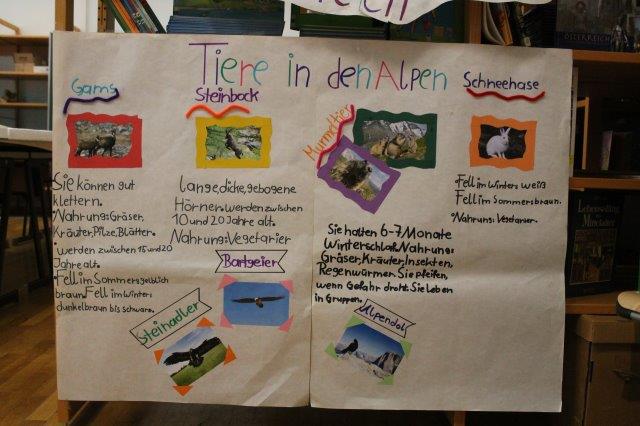 Tiere in den Alpen
Gams
Sie können gut
klettern.
•Nahrung: Gräser,
Kräuter, Pilze, Blätter.
•werden zwischen 15 und 20
Jahre alt.
•Fell im Sommer: gelblich
braun. Fell im Winter:
dunkelbraun bis schwarz.
Steinbock
lange, dicke, gebogene
Hörner. werden zwischen
10 und 20 Jahre alt.
Nahrung: Vegetarier
Bartgeier
Steinadler
Murmeltier
Sie halten 6-7 Monate
Winterschlaf. Nahrung:
Gräser, Kräuter, Insekten,
Regenwürmer. Sie pfeifen,
wenn Gefahr droht. Sie Leben
in Gruppen.
Alpendole
Schneehase
•Fell im Winter: weiß
Fell im Sommer: braun.
•Nahrung: Vegetarier.
ÖSTERREICH